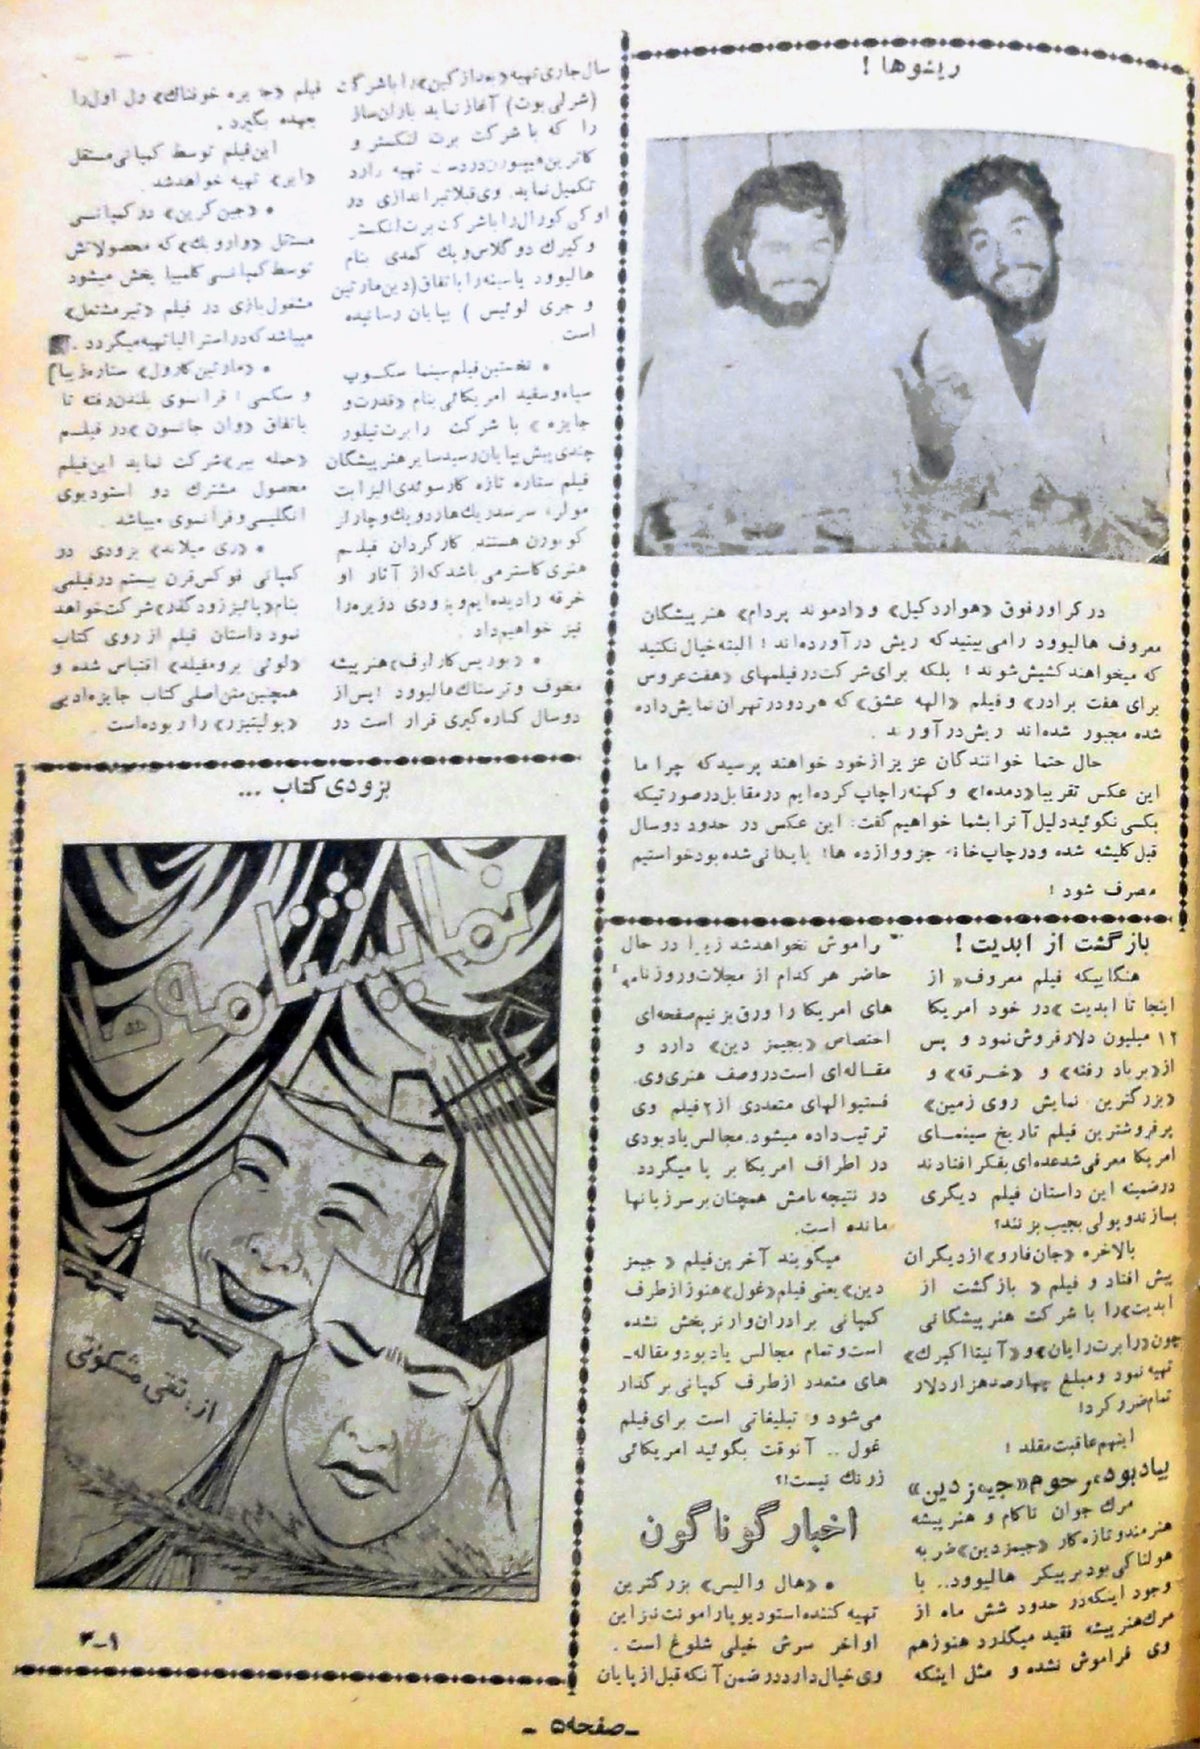 ریشوها !
در کراور فوق «هوارد کیل» و «ادموند پردام» هنرپیشگان
معروف هالیوود را می بینید که ریش در آورده اند ! البته خیال نکنید
که میخواهند کشیش شوند ! بلکه برای شرکت در فیلمهای «هفت عروس
برای هفت برادر» و فیلم «الهه عشق» که هر دو در تهران نمایش داده
شده مجبور شده اند ریش در آورند .
حال حتما خوانندگان عزیز از خود خواهند پرسید که چرا ما
این عکس تقریبا «دمده!» و کهنه را چاپ کرده ایم در مقابل در صورتیکه
بکسی نگوئید دلیل آنرا بشما خواهیم گفت: این عکس در حدود دو سال
قبل کلیشه شده و در چاپ خانه جزو وازده ها! بایگانی شده بود خواستیم
مصرف شود !
بازگشت از ابدیت !
هنگامیکه فیلم معروف «از
اینجا تا ابدیت» در خود امریکا
۱۲ میلیون دلار فروش نمود و پس
از «بر باد رفته» و «خرقه» و
«بزرگترین نمایش روی زمین»
پرفروشترین فیلم تاریخ سینمای
امریکا معرفی شد عده ای بفکر افتادند
در ضمینه این داستان فیلم دیگری
بسازند و پولی بجیب بزنند؟
بالاخره «جان فارو» از دیگران
پیش افتاد و فیلم « بازگشت از
ابدیت» را با شرکت هنرپیشگانی
چون «رابرت رایان» و «آنیتا اکبرك»
تهیه نمود و مبلغ چهارصد هزار دلار
تمام ضرر کرد!
اینهم عاقبت مقلد !
بیادبود مرحوم «جیمز دین»
مرك جوان ناکام و هنرپیشه
هنرمند و تازه کار «جیمز دین» ضربه
هولناکی بود بر پیکر هالیوود.. با
وجود اینکه در حدود شش ماه از
مرك هنرپیشه فقید میگذرد هنوز هم
وی فراموش نشده و مثل اینکه
فراموش نخواهد شد زیرا در حال
حاضر هر کدام از مجلات و روزنامه
های امریکا را ورق بزنیم صفحه ای
اختصاص «بجیمز دین» دارد و
مقاله ای است در وصف هنری وی.
فستیوالهای متعددی از ۲ فیلم وی
ترتیب داده میشود. مجالس یادبودی
در اطراف امریکا بر پا میگردد
در نتیجه نامش همچنان بر سر زبانها
مانده است.
میگویند آخرین فیلم « جیمز
دین» یعنی فیلم «غول» هنوز از طرف
کمپانی برادران وارنر پخش نشده
است و تمام مجالس یادبود و مقاله-
های متعدد از طرف کمپانی بر گذار
می شود و تبلیغاتی است برای فیلم
غول .. آنوقت بگوئید امریکائی
زرنك نیست!؟
اخبار گوناگون
• «هال والیس» بزرگترین
تهیه کننده استودیو پارامونت نیز این
اواخر سرش خیلی شلوغ است .
وی خیال دارد در ضمن آنکه قبل از پایان
سال جاری تهیه را باشرکت
(شرلی بوت) آغاز نماید باران ساز
را که با شرکت برت لنکستر و
کاترین هیپبورن در دست تهیه دارد
تکمیل نماید. وی قبلا تیراندازی در
او کی کورال را باشرکت برت لنکستر
و کیرك دوگلاس و یك کمدی بنام
هالیوود یا سینه را با تفاق (دین مارتین
و جری لوئیس ) بپایان رسانیده
است
• نخستین فیلم سینما سکوپ
سیاه و سفید امریکائی بنام «قدرت و
جایزه » با شرکت رابرت تیلور
چندی پیش بپایان رسید سایر هنرپیشگان
فیلم ستاره تازه کار سوئدی الیزابت
مولر، سر سدریك هاردویك و چارلز
کوبورن هستند. کارگردان فیلم
هنری کاستر می باشد که از آثار او
خرقه را دیده ایم و بزودی دزیره را
نیز خواهیم داد .
• «بوریس کارلوف» هنرپیشه
مخوف و ترسناك هالیوود ! پس از
دو سال کناره گیری قرار است در
فیلم «جزیره خوفناك» رل اول را
بعهده بگیرد .
این فیلم توسط کمپانی مستقل
تهیه خواهد شد
• «جین گرین» در کمپانی
مستقل «وارویك» که محصولاتش
توسط کمپانی کلمبیا پخش میشود
مشغول بازی در فیلم «تیر مشتعل»
میباشد که در استرالیا تهیه میگردد .
• «مارتین کارول» ستاره زیبا
و سکسی ! فرانسوی بلندن رفته تا
با تفاق «وان جانسون» در فیلم
«حمله ببر» شرکت نماید این فیلم
محصول مشترك دو استودیوی
انگلیسی و فرانسوی میباشد .
• «ری میلاند» بزودی در
کمپانی فوکس قرن بیستم در فیلمی
بنام «پائیز زودگذر» شرکت خواهد
نمود داستان فیلم از روی کتاب
«لوئی برومفیلد» اقتباس شده و
همچنین متن اصلی کتاب جایزه ادبی
«پولیتیزر» را ربوده است .
بزودی کتاب ...
نمایشنامه ها
از: تقی مشکوتی
۴-۱
- صفحه ۵ -